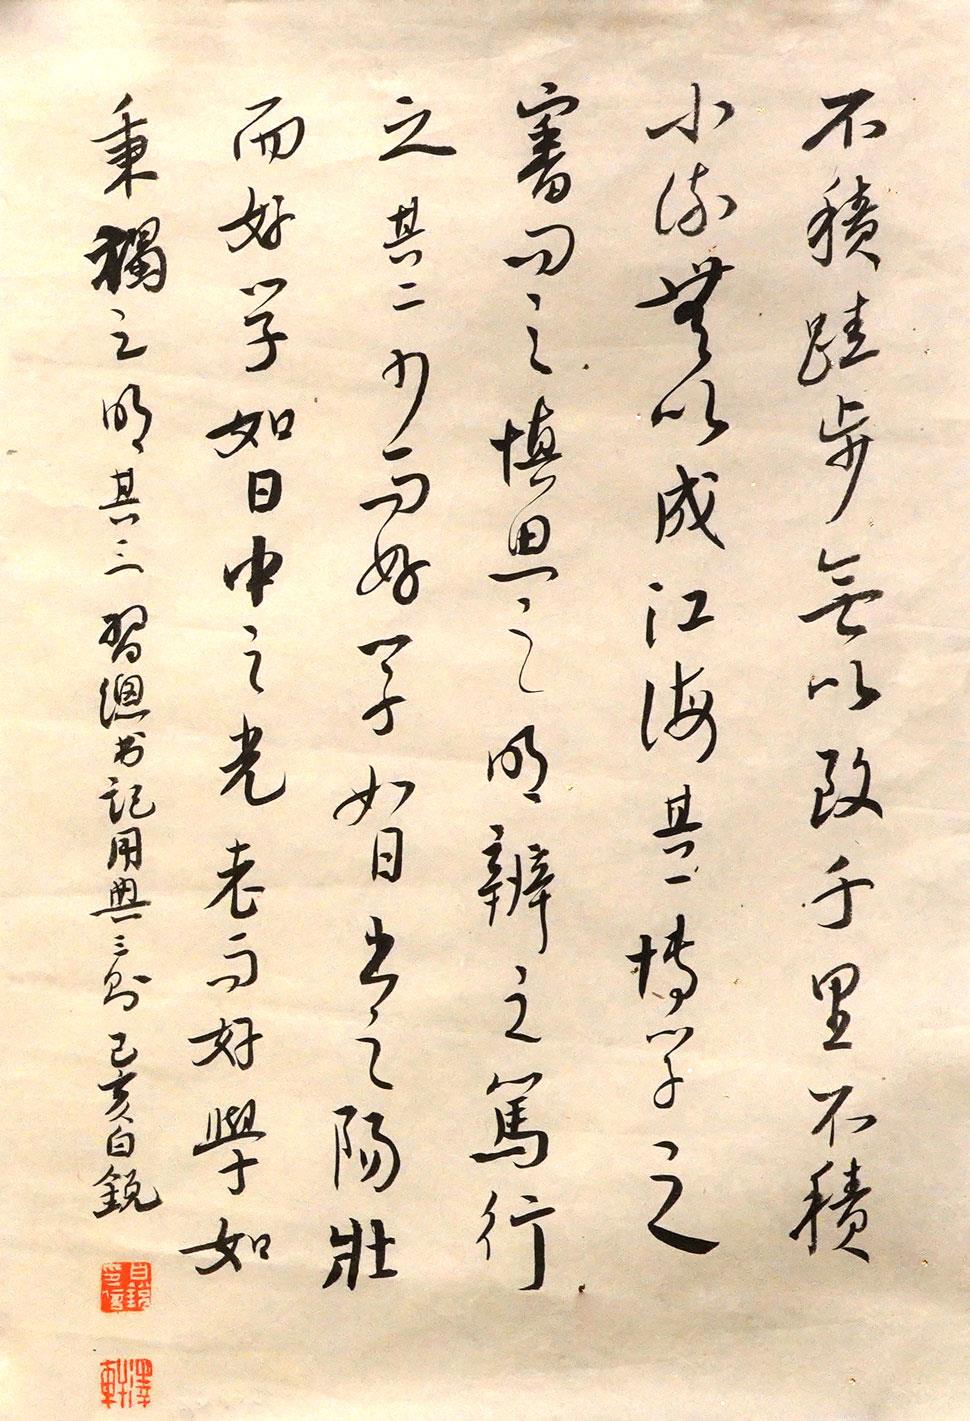 不積跬步無以致千里不積
小流無以成江海其一博學之
審問之慎思之明辨之篤行
之其二少而好學如日出之陽壯
而好學如日中之光老而好學如
秉燭之明其三習總书記用典三則己亥白銳
白銳印信
澤軒